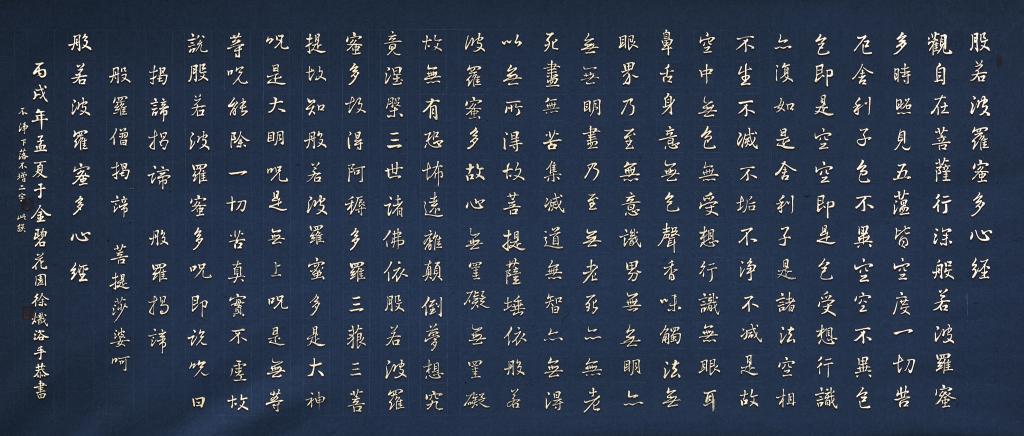 般若波羅蜜多心経
觀自在菩薩行深般若波羅蜜
多時照見五蘊皆空度一切苦
厄舍利子色不異空空不異色
色即是空空即是色受想行識
亦復如是舍利子是諸法空相
不生不滅不垢不淨不減是故
空中無色無受想行識無眼耳
鼻舌身意無色聲香味觸法無
眼界乃至無意識界無無明亦
無無明盡乃至無老死亦無老
死盡無苦集滅道無智亦無得
以無所得故菩提薩埵依般若
波羅蜜多故心無罣礙無罣礙
故無有恐怖遠離顛倒夢想究
竟涅槃三世諸佛依般若波羅
蜜多故得阿耨多羅三藐三菩
提故知般若波羅蜜多是大神
咒是大明咒是無上咒是無等
等咒能除一切苦真實不虛故
說般若波羅蜜多咒即說咒曰
揭諦揭諦 般羅揭諦
般羅僧揭諦 菩提莎婆呵
般若波羅蜜多心經
丙戌年孟夏于金碧花園徐熾洛手恭書
不淨下落不增二字